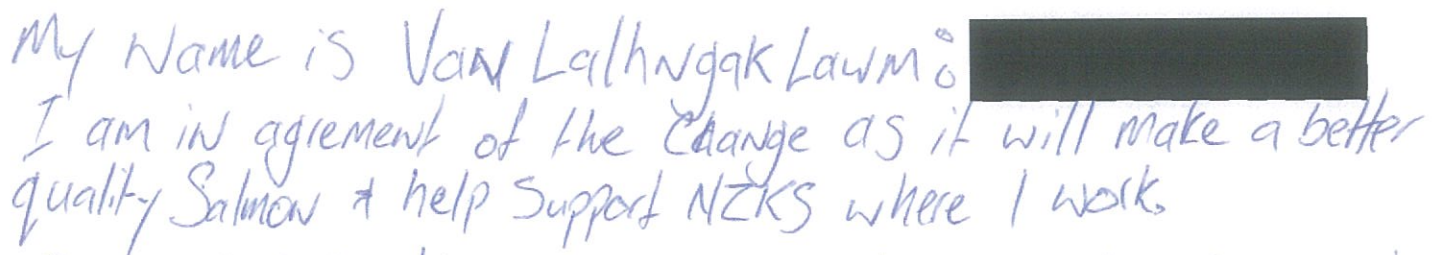 My Name is Van Lalhngak Lawm:
I am in agrement of the Change as it will make a better
quality Salmon & help Support NZKS where I work.